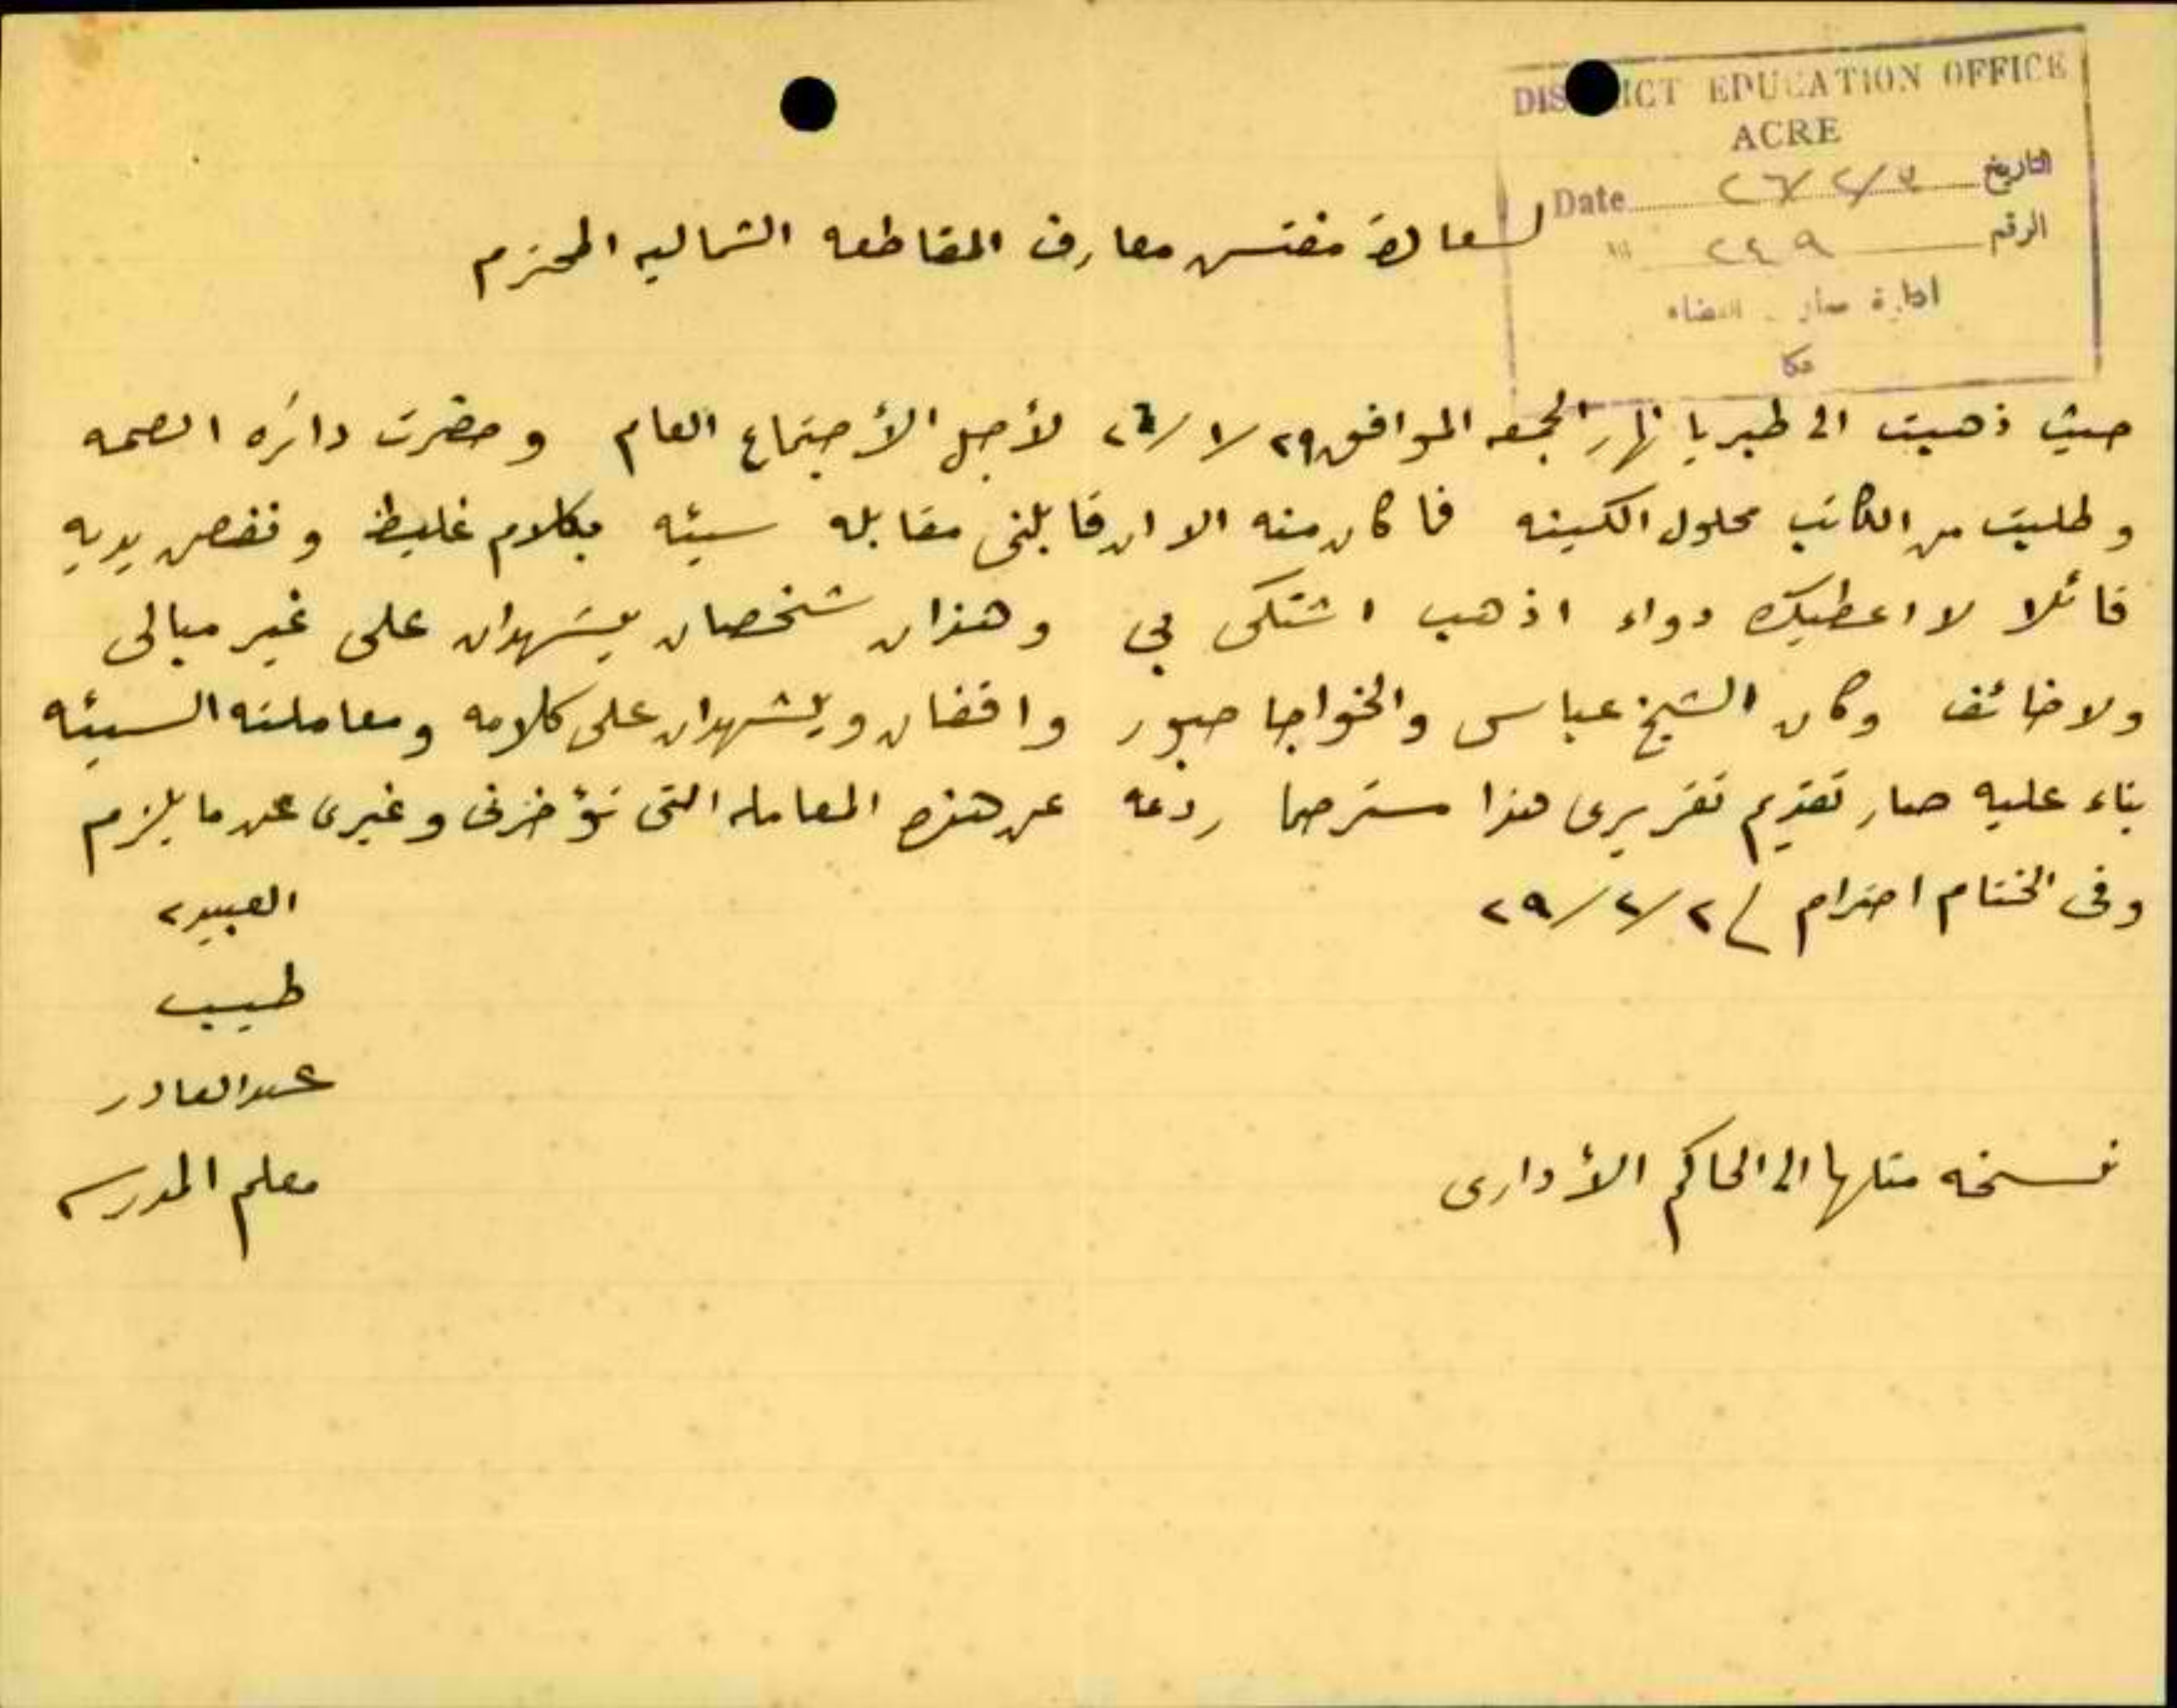 DISTRICT EDUCATION OFFICE
ACRE
التاريخ ٢٦/٢/٣ Date
الرقم ٢٤٩
ادارة معارف القضاء
عكا
لسعادة مفتش معارف المقاطعه الشماليه المحترم
حيث ذهبت الى طبريا نهار الجمعه الموافق ٢٩/١/٢٦ لأجل الأجتماع العام وحضرت دائره الصحه
وطلبت من الكاتب محلول الكينه فما كان منه الا ان قابلنى مقابله سيئه بكلام غليظ ونفض يديه
قائلا لا اعطيك دواء اذهب اشتكى بي وهذان شخصان يشهدان على غير مبالى
ولا خائف وكان الشيخ عباس والخواجا جبور واقفان ويشهدان على كلامه ومعاملته السيئه
بناء عليه صار تقديم تقريرى هذا مسترحما ردعه عن هذه المعامله التى تؤخرنى وغيرى عن ما يلزم
وفى الختام احترام ٢٩/٢/٢
العبيديه
طبيب
عبدالقادر
معلم المدرسه
نسخه مثلها الى الحاكم الأدارى